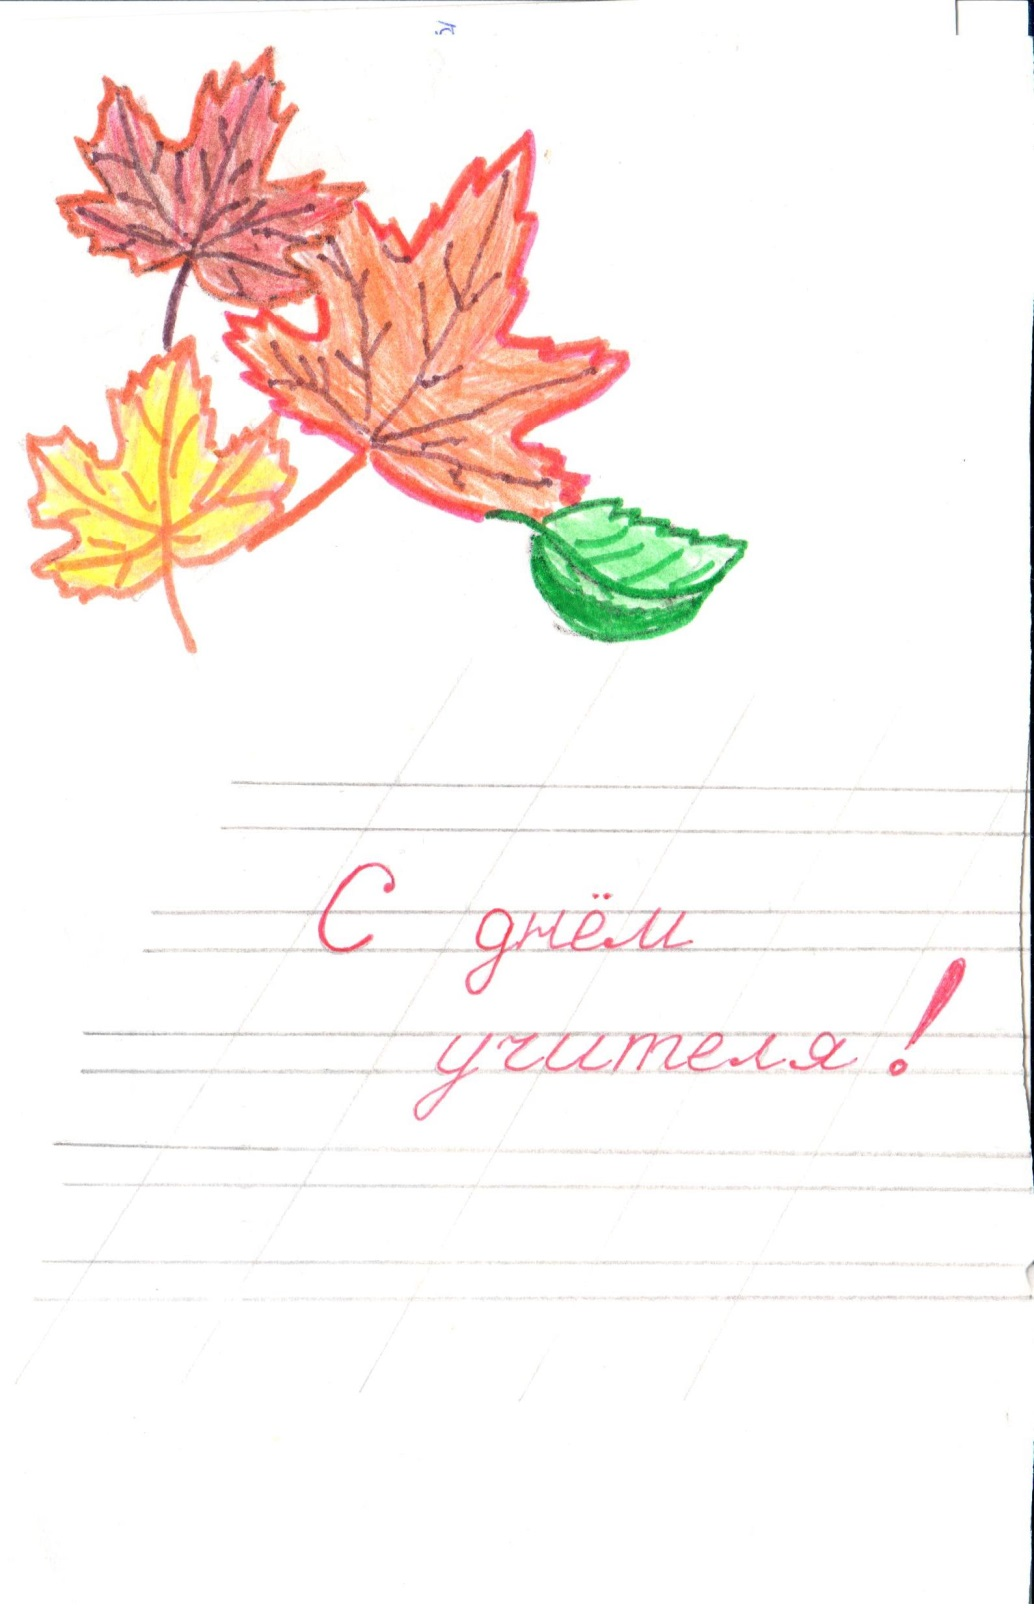 С днём
учителя!